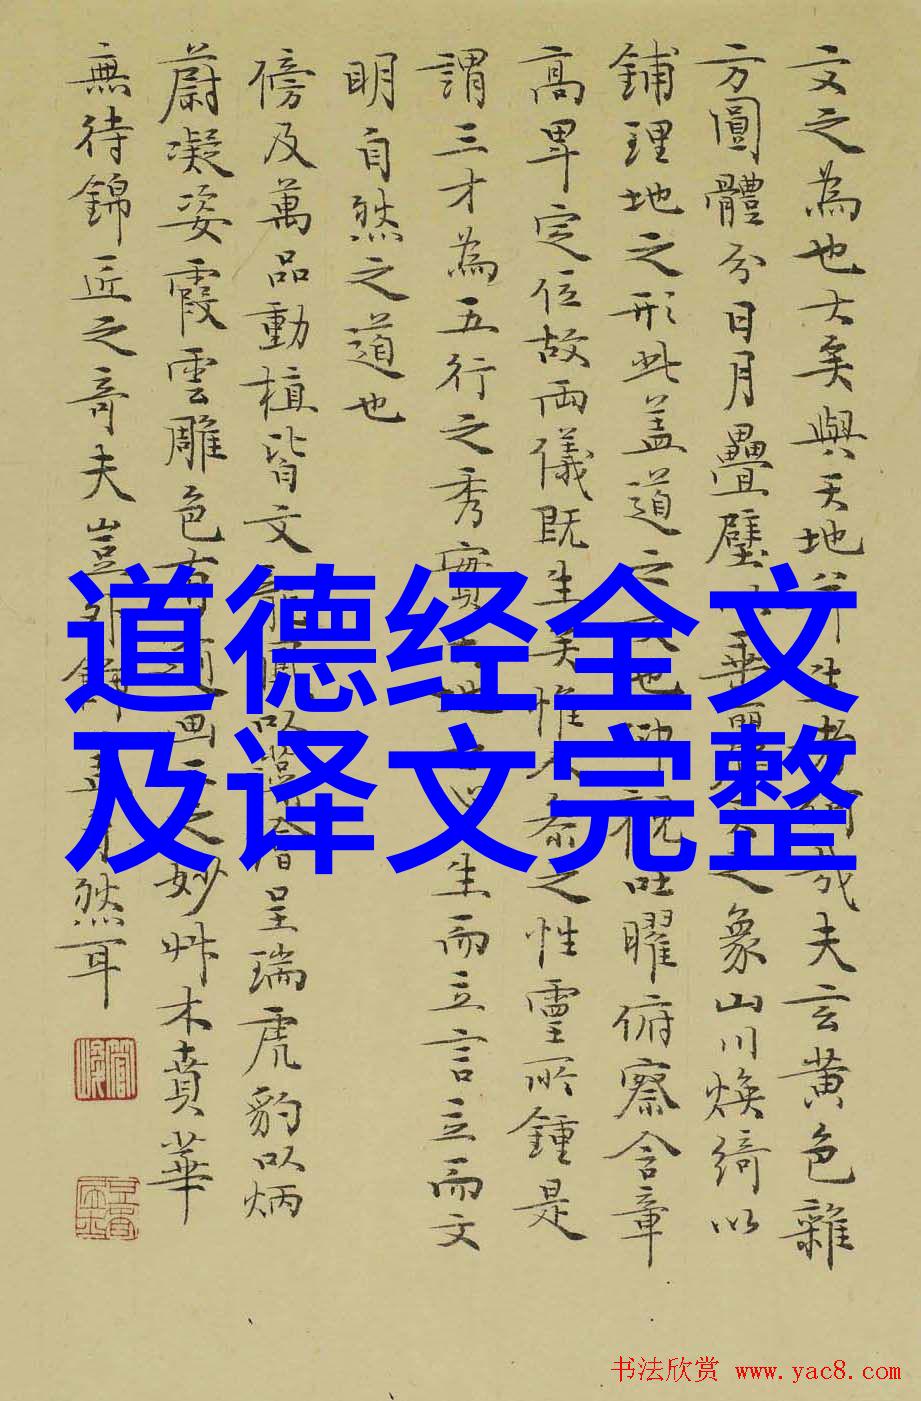 文之為也大矣與天地并生哉夫玄黄色雜
方圓體分日月疊璧之象山川煥綺以
鋪理地之形此盖道之也視吐曜俯察含章
高卑定位故兩儀既生矣惟人之性靈所鍾是
謂三才為五行之秀實生而立言立而文
明自然之道也
傍及萬品動植皆文以呈瑞虎豹以炳
蔚凝姿霞雲雕色有之妙艸木賁華
無待錦匠之奇夫豈外然耳
道德经全文
及译文完整
书法欣赏 www.yac8.com